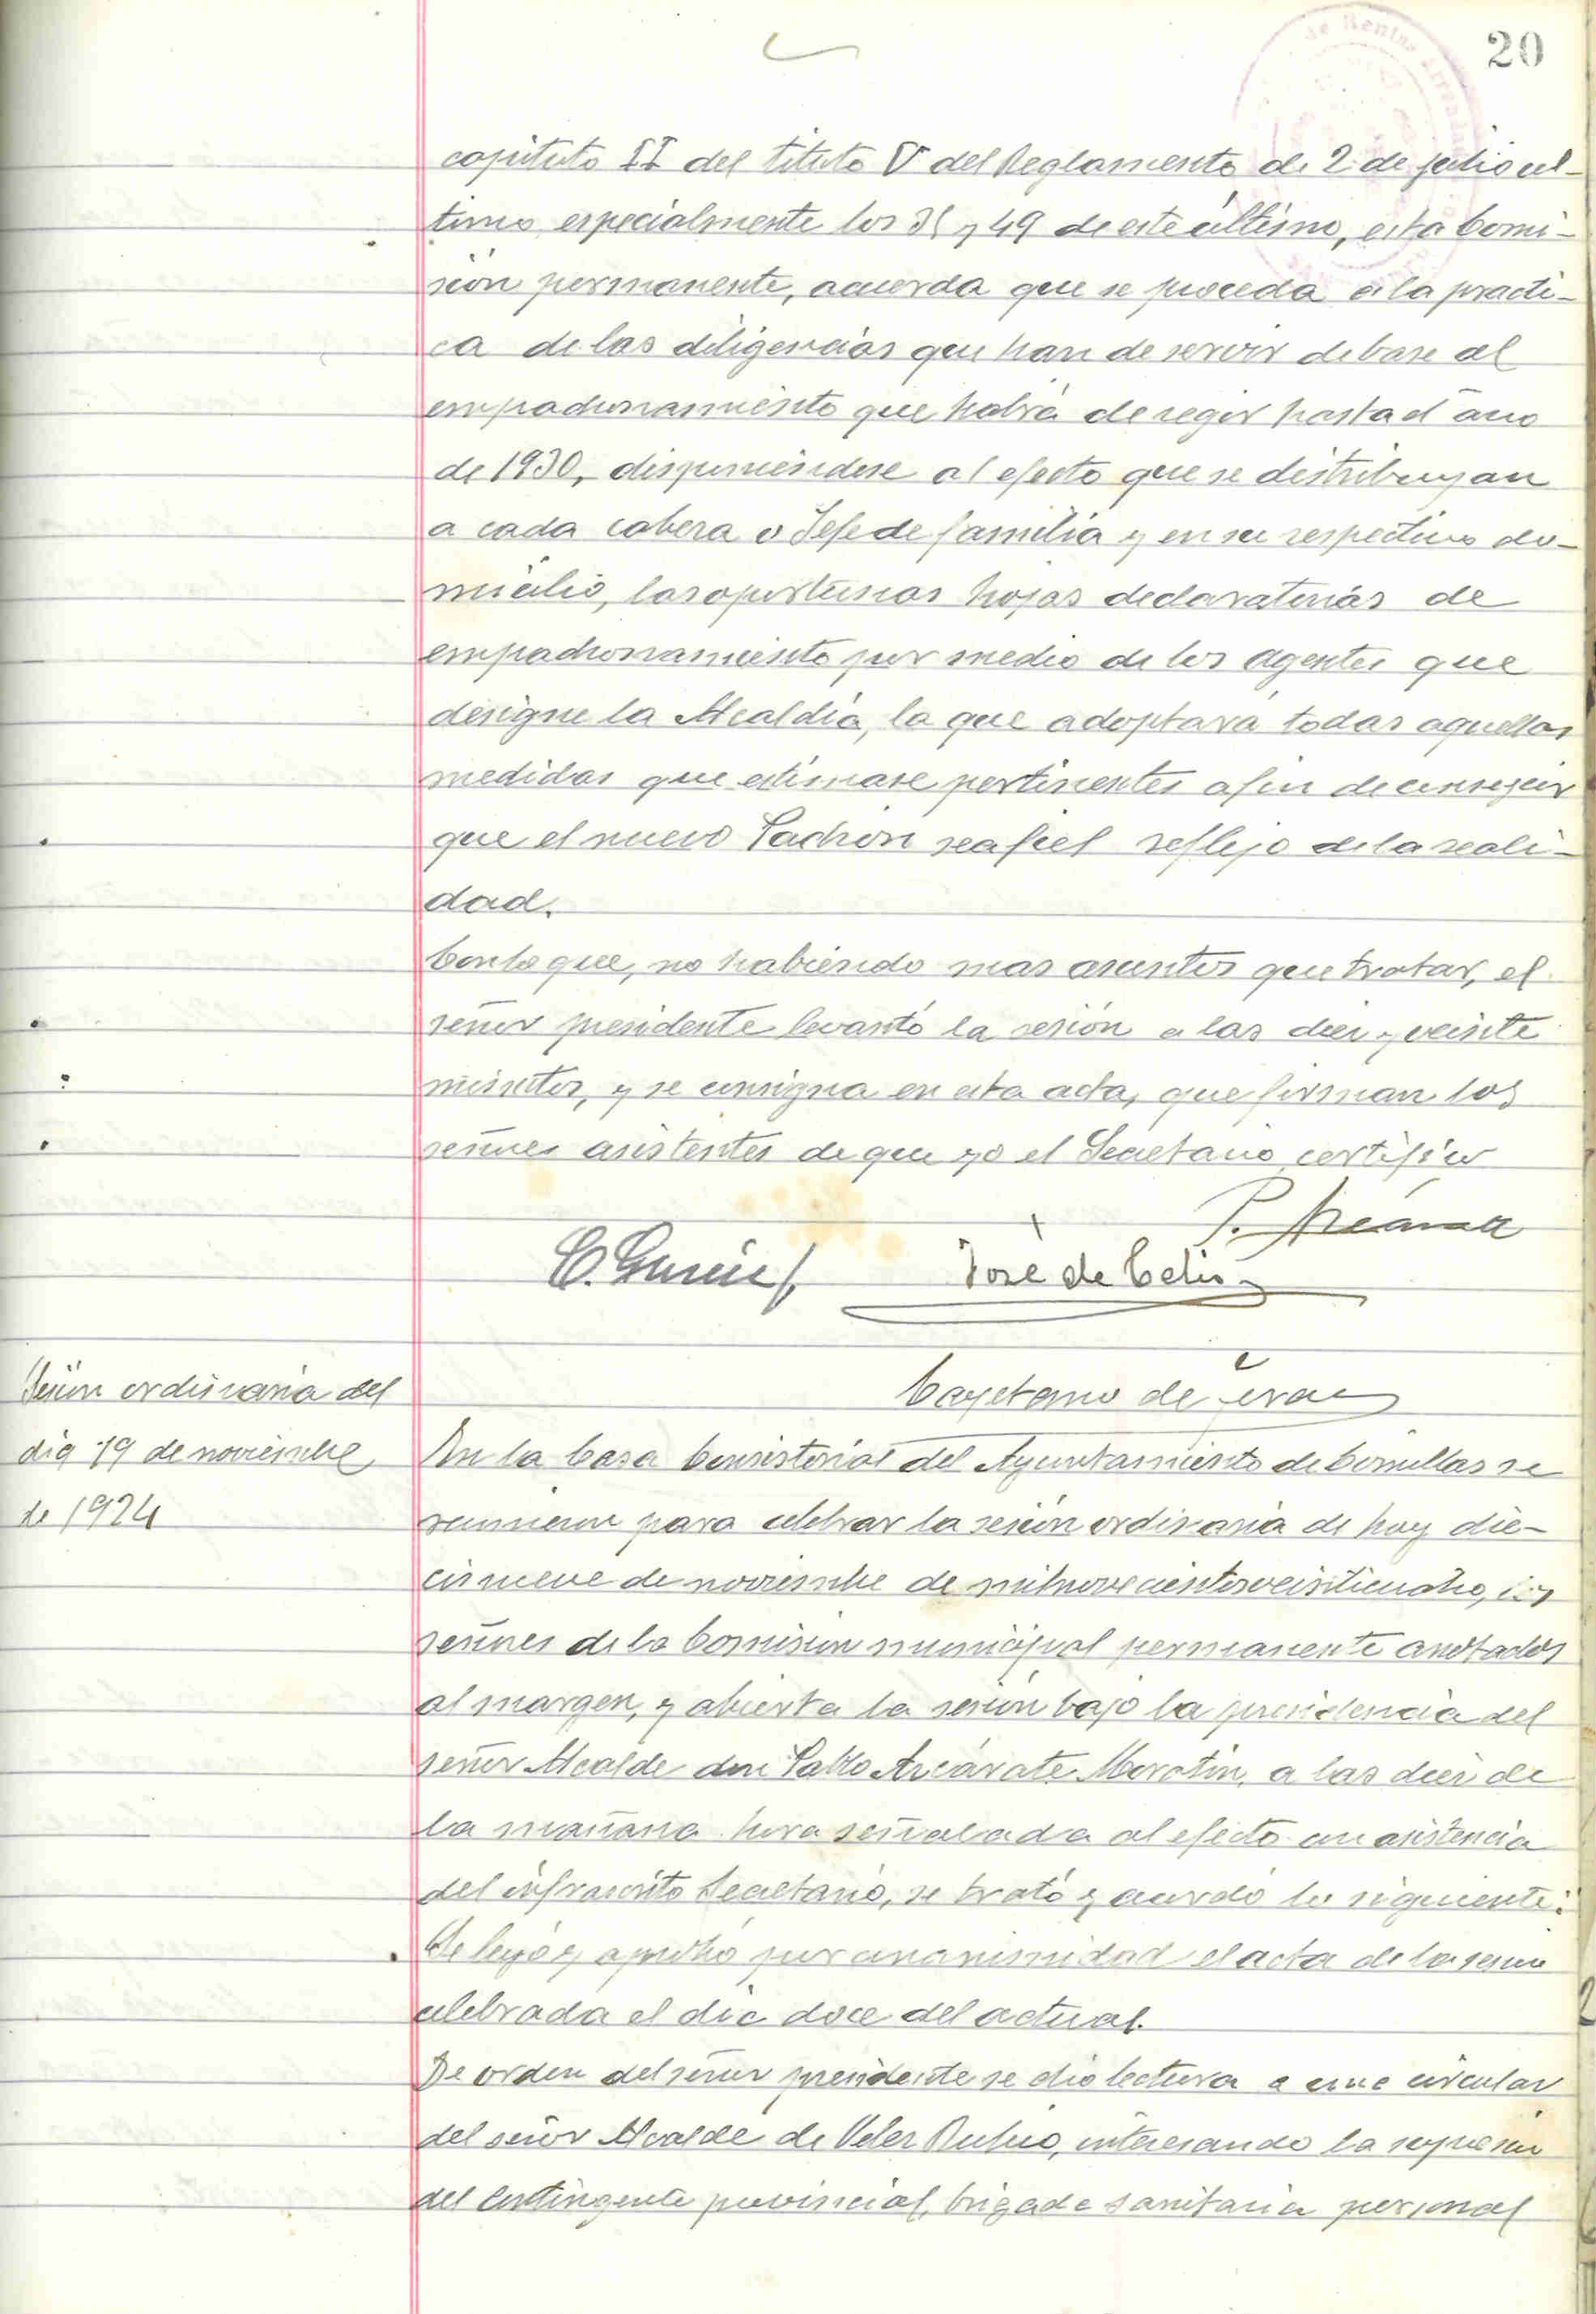 20
capitulo II del titulo V del Reglamento de 2 de julio ul-
timo, especialmente los 38 y 49 de este último, esta Comi-
sión permanente, acuerda que se proceda a la practi-
ca de las diligencias que han de servir de base al
empadronamiento que habrá de regir hasta el año
de 1930, disponiéndose al efecto que se distribuyan
a cada cabeza o Jefe de familia y en su respectivo do-
micilio, las oportunas hojas declaratorias de
empadronamiento por medio de los agentes que
designe la Alcaldía, la que adoptará todas aquellas
medidas que estimase pertinentes a fin de conseguir
que el nuevo Padron sea fiel reflejo de la reali-
dad.
Con lo que, no habiendo mas asuntos que tratar, el
señor presidente levantó la sesión a las diez y veinte
minutos, y se consigna en esta acta, que firman los
señores asistentes de que yo el Secretario certifico
P. Azcárate
José de Celis
Cayetano de
Sesión ordinaria del
dia 19 de noviembre
de 1924
En la Casa Consistorial del Ayuntamiento de Comillas se
reunieron para celebrar la sesión ordinaria de hoy die-
cinueve de noviembre de mil novecientos veinticuatro, los
señores de la Comisión municipal permanente anotados
al margen, y abierta la sesión bajo la presidencia del
señor Alcalde don Pablo Azcárate Moratin, a las diez de
la mañana hora señalada al efecto con asistencia
del infrascrito Secretario, se trató y acordó lo siguiente:
Se leyó y aprobó por unanimidad el acta de la sesión
celebrada el dia doce del actual.
De orden del señor presidente se dio lectura a una circular
del señor Alcalde de Velez Rubio, interesando la supresión
del contingente provincial, brigada sanitaria personal